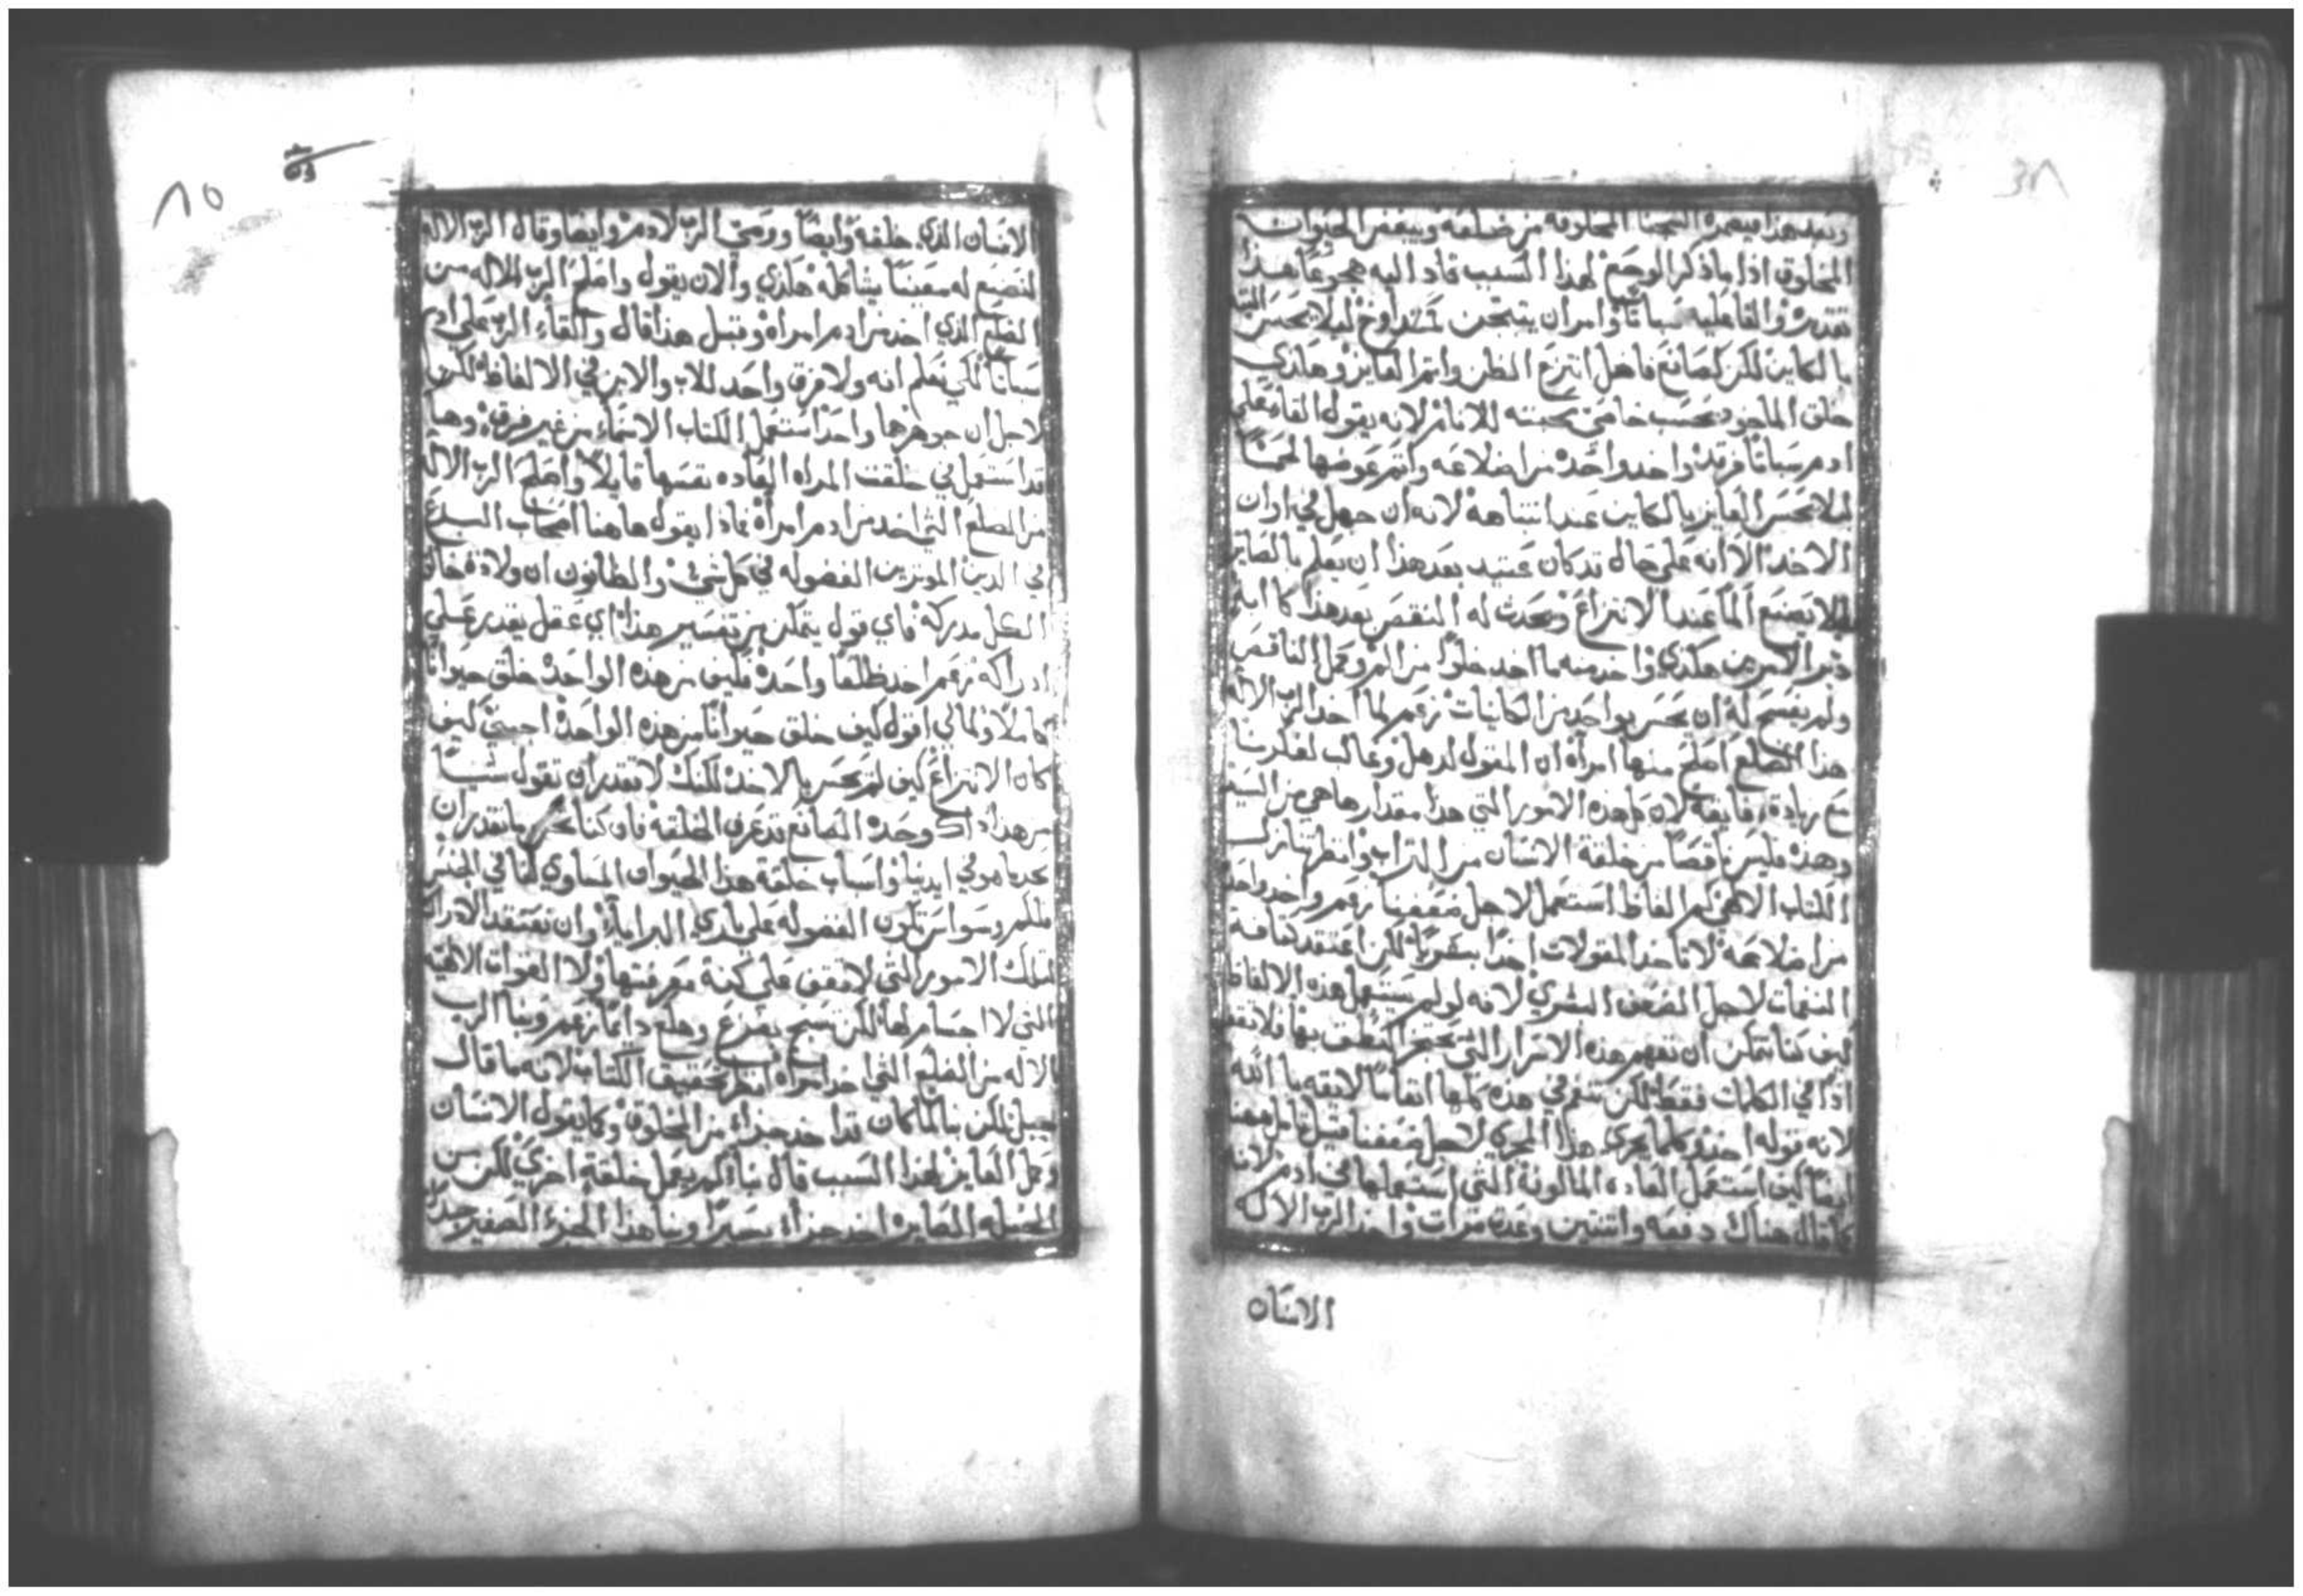 ٨٤
وبعد هذا فيصير المخلوقة من ضلعه ويبغض الحيوان
المخلوق اذا ما ذكر الوجع لهذا السبب قاد اليه هجوعًا هذا
تقديره والقا عليه سباتًا وامر ان ليلا يحس البته
بالكاين لكن كصانع فاضل انتزع واتم العايز وهكذي
خلق الماخود بحسب خاصة محبته للانام لانه يقول القا على
ادم سباتًا فرقد واخد واحدة من اضلاعه واتم عوضها لحمًا
ليلا يحس العايز بالكاين عند انتباهه لانه ان جهل في اوان
الاخد الا انه على حال قد كان عتيد بعد هذا ان يعلم بالصاير
ليلا يصنع المًا عند الانتزاع ويحدث له النقص بعد هذا كابه
دبر الامرين هكذي واخد منه ما اخد خلوًا من الم وكمل الناقص
ولم يفسح له ان يحس بواحد من الكاينات زعم لما اخد الرب الاله
هذا الضلع اصلح منها امرأة ان المقول لدهل وغالب لفكرنا
مع زيادة فايقة لان كل هذه الامور التي هذا مقدارها هي من السيد
وهذه فليس ناقصًا من خلقة الانسان من التراب وانظر تنازل
الكتاب الالهي كم الفاظ استعمل لاجل ضعفنا زعم واخد واحدة
من اضلاعه لا تاخد المقولات اخدًا بشريًا لكن اعتقد كثافة
النغمات لاجل الضعف البشري لانه لو لم يستعمل هذه الالفاظ
كيف كنا نتمكن ان نفهم هذه الاسرار التي بها فلا نقف
اذًا في الكلمات فقط لكن نفهم هذه كلها افهامًا لايقه بالله
لانه قوله اخد وكلما يجري هذا المجري لاجل ضعفنا قيل تامل ههنا
ايضًا كيف استعمل العاده المالوفة التي استعملها في ادم لانه
كما قال هناك دفعه واثنتين وعدة مرات واخد الرب الاله
الانسان
٨٥
الانسان الذي خلقه وايضًا ووصي الرب لادم وايضا وقال الرب الاله
لنصنع له معينًا يشاكله هكذي والان يقول واصلح الرب الاله من
الضلع الذي اخد من ادم امرأه وقبل هذا قال والقاء الرب علي ادم
سباتًا لكي نعلم انه ولا فرق واحد للاب والابن في الالفاظ لكن
لاجل ان جوهرهما واحدًا استعمل الكتاب الاسماء من غير فرق وها
قد استعمل في خلقت المراه العاده نفسها قايلًا واصلح الرب الاله
من الضلع التي اخد من ادم امرأة فماذا يقول هاهنا اصحاب البدع
في الدين الموثرين الفضوله في كل شيء والظانون ان ولادة خالق
الكل مدركة فاي قول يتمكن من تفسير هذا اي عقل يقدر علي
ادراكه زعم اخد ضلعًا واحدة فكيف من هذه الواحدة خلق حيوانًا
كاملًا ولماذا لي اقول كيف خلق حيوانًا من هذه الواحدة اجبني كيف
كان الانتزاع كيف لم يحس بالاخد لكنك لا تقدر ان تقول شيئًا
من هذا ذاك وحده الصانع قد عرف الخلقة فان كنا نحن ما نقدر ان
نحد ما هو في ايدينا واسباب خلقة هذا الحيوان المساوي لنا في الجنس
فكم وسواس تكون الفضوله على باري البرايا وان نعتقد الادراك
لتلك الامور التي لا تقف على كنه معرفتها ولا القوات الالهيه
التي لا اجسام لها لكن تسبح بفزع وهلع دايمًا زعم وبنا الرب
الاله من الضلع التي اخد امراه انظر تحقيق الكتاب لانه ما قال
جبل لكن بنا لما كان قد اخد جزاء من المخلوق وكما يقول الانسان
وكمل العايز لهذا السبب قال بنا لم يعمل خلقة اخري لكن من
الجبله الصايره اخد جزاء يسيرًا وبنا هذا الجزء الصغير جدًا